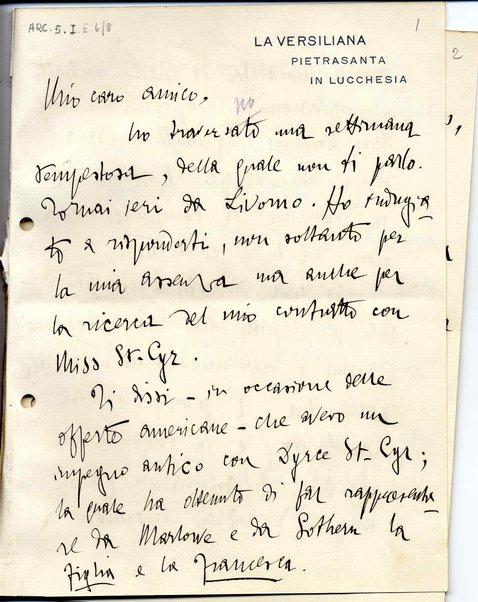 ARC. 5. I. E. 6/8
1
2
LA VERSILIANA
PIETRASANTA
IN LUCCHESIA
Mio caro amico,
no
ho traversato una settimana
tempestosa, della quale non ti parlo.
Tornai ieri da Livorno. Ho indugia
to a risponderti, non soltanto per
la mia assenza ma anche per
la ricerca del mio contratto con
Miss St-Cyr.
Ti dissi - in occasione delle
offerte americane - che avevo un
impegno antico con Dyrce St-Cyr;
la quale ha ottenuto di far rappresenta
re da Marlowe e da Sothern la
Figlia e la Francesca.